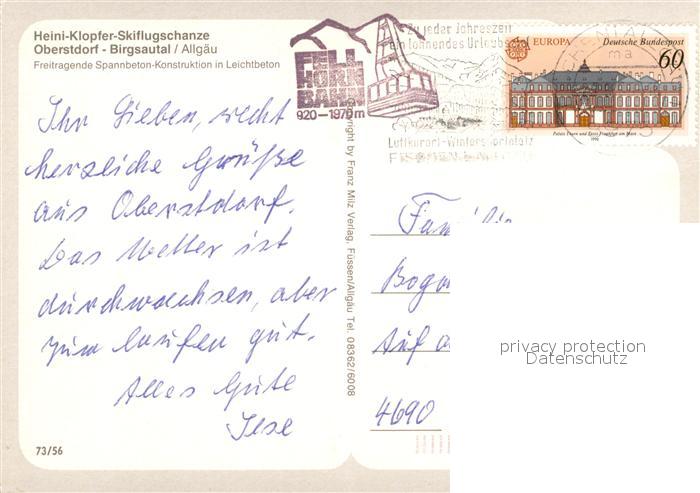 Heini-Klopfer-Skiflugschanze
Oberstdorf - Birgsautal / Allgäu
Freitragende Spannbeton-Konstruktion in Leichtbeton
FELL
HORN
BAHN
920-1970m
Zu jeder Jahreszeit
ein lohnendes Urlaubs
Luftkurort-Wintersportplatz
EUROPA Deutsche Bundespost
60
Palais Thurn und Taxis Frankfurt am Main
1990
Ihr Lieben, recht
herzliche Grüße
aus Oberstdorf.
Das Wetter ist
durchwachsen, aber
zum laufen gut.
Alles Gute
Ilse
73/56
right by Franz Milz Verlag, Füssen/Allgäu Tel. 08362/6008
Familie
Boga
Auf d
4690
privacy protection
Datenschutz